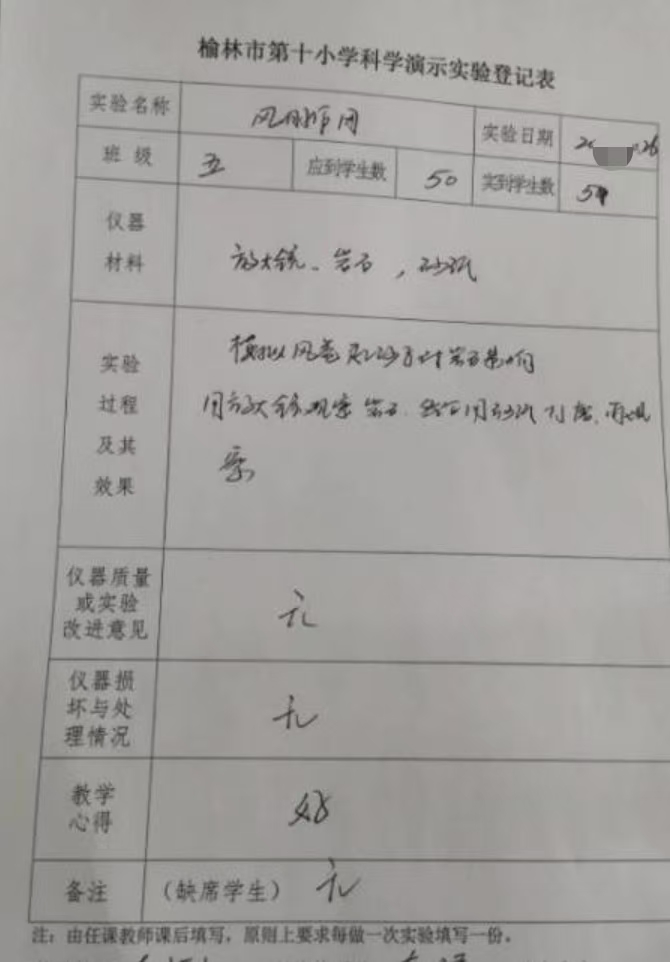 榆林市第十小学科学演示实验登记表
实验名称 风的作用 实验日期
班级 五 应到学生数 50 实到学生数
仪器材料 放大镜、岩石，砂纸
实验过程及其效果
模拟风卷起沙子对岩石影响
用放大镜观察岩石，然后用砂纸打磨，再观
察
仪器质量或实验改进意见 无
仪器损坏与处理情况 无
教学心得 好
备注 （缺席学生） 无
注：由任课教师课后填写，原则上要求每做一次实验填写一份。